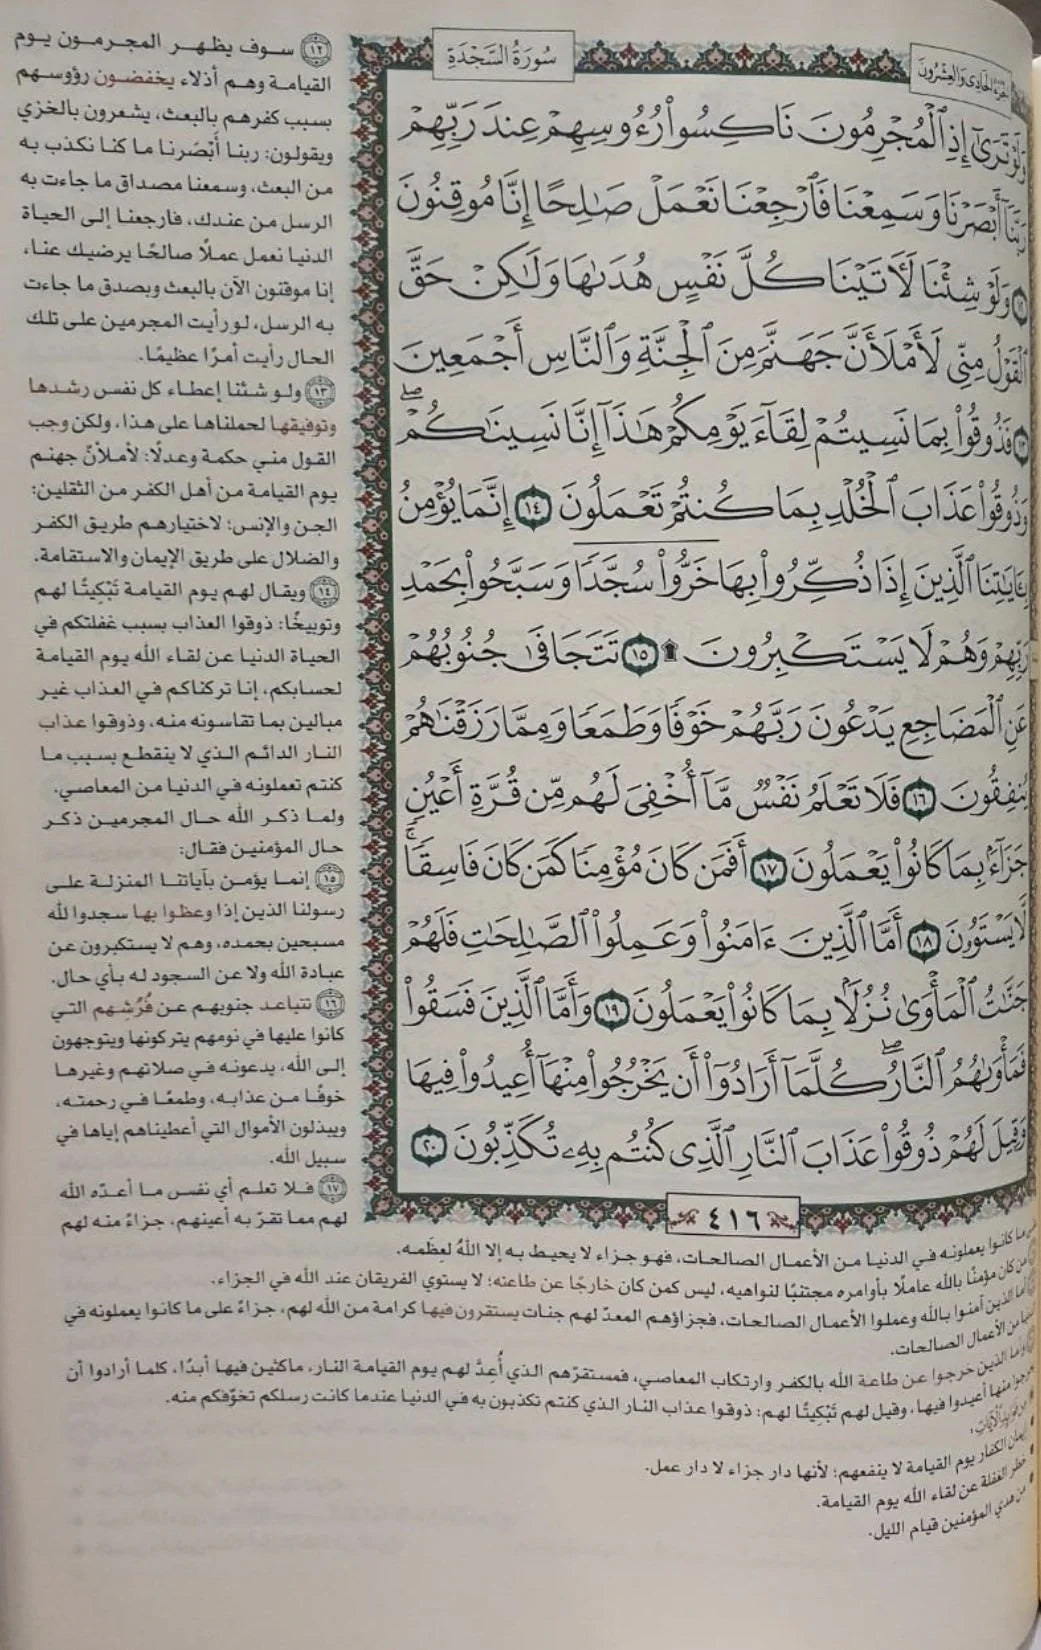 الجزء الحادي والعشرون
سُورَةُ السَّجْدَةِ
وَلَوْ تَرَىٰٓ إِذِ ٱلْمُجْرِمُونَ نَاكِسُوا۟ رُءُوسِهِمْ عِندَ رَبِّهِمْ
رَبَّنَآ أَبْصَرْنَا وَسَمِعْنَا فَٱرْجِعْنَا نَعْمَلْ صَٰلِحًا إِنَّا مُوقِنُونَ
١٢ وَلَوْ شِئْنَا لَأٓتَيْنَا كُلَّ نَفْسٍ هُدَىٰهَا وَلَٰكِنْ حَقَّ
ٱلْقَوْلُ مِنِّى لَأَمْلَأَنَّ جَهَنَّمَ مِنَ ٱلْجِنَّةِ وَٱلنَّاسِ أَجْمَعِينَ
١٣ فَذُوقُوا۟ بِمَا نَسِيتُمْ لِقَآءَ يَوْمِكُمْ هَٰذَآ إِنَّا نَسِينَٰكُمْ ۖ
وَذُوقُوا۟ عَذَابَ ٱلْخُلْدِ بِمَا كُنتُمْ تَعْمَلُونَ ١٤ إِنَّمَا يُؤْمِنُ
بِـَٔايَٰتِنَا ٱلَّذِينَ إِذَا ذُكِّرُوا۟ بِهَا خَرُّوا۟ سُجَّدًا وَسَبَّحُوا۟ بِحَمْدِ
رَبِّهِمْ وَهُمْ لَا يَسْتَكْبِرُونَ ۩ ١٥ تَتَجَافَىٰ جُنُوبُهُمْ
عَنِ ٱلْمَضَاجِعِ يَدْعُونَ رَبَّهُمْ خَوْفًا وَطَمَعًا وَمِمَّا رَزَقْنَٰهُمْ
يُنفِقُونَ ١٦ فَلَا تَعْلَمُ نَفْسٌ مَّآ أُخْفِىَ لَهُم مِّن قُرَّةِ أَعْيُنٍ
جَزَآءًۢ بِمَا كَانُوا۟ يَعْمَلُونَ ١٧ أَفَمَن كَانَ مُؤْمِنًا كَمَن كَانَ فَاسِقًا ۚ
لَّا يَسْتَوُۥنَ ١٨ أَمَّا ٱلَّذِينَ ءَامَنُوا۟ وَعَمِلُوا۟ ٱلصَّٰلِحَٰتِ فَلَهُمْ
جَنَّٰتُ ٱلْمَأْوَىٰ نُزُلًۢا بِمَا كَانُوا۟ يَعْمَلُونَ ١٩ وَأَمَّا ٱلَّذِينَ فَسَقُوا۟
فَمَأْوَىٰهُمُ ٱلنَّارُ ۖ كُلَّمَآ أَرَادُوٓا۟ أَن يَخْرُجُوا۟ مِنْهَآ أُعِيدُوا۟ فِيهَا
وَقِيلَ لَهُمْ ذُوقُوا۟ عَذَابَ ٱلنَّارِ ٱلَّذِى كُنتُم بِهِۦ تُكَذِّبُونَ ٢٠
٤١٦
١٢ سوف يظهر المجرمون يوم
القيامة وهم أذلاء يخفضون رؤوسهم
بسبب كفرهم بالبعث، يشعرون بالخزي
ويقولون: ربنا أَبْصَرنا ما كنا نكذب به
من البعث، وسمعنا مصداق ما جاءت به
الرسل من عندك، فارجعنا إلى الحياة
الدنيا نعمل عملًا صالحًا يرضيك عنا،
إنا موقنون الآن بالبعث وبصدق ما جاءت
به الرسل، لو رأيت المجرمين على تلك
الحال رأيت أمرًا عظيمًا.
١٣ ولو شئنا إعطاء كل نفس رشدها
وتوفيقها لحملناها على هذا، ولكن وجب
القول مني حكمة وعدلًا: لأملأنّ جهنم
يوم القيامة من أهل الكفر من الثقلين:
الجن والإنس؛ لاختيارهم طريق الكفر
والضلال على طريق الإيمان والاستقامة.
١٤ ويقال لهم يوم القيامة تَبْكِيتًا لهم
وتوبيخًا: ذوقوا العذاب بسبب غفلتكم في
الحياة الدنيا عن لقاء الله يوم القيامة
لحسابكم، إنا تركناكم في العذاب غير
مبالين بما تقاسونه منه، وذوقوا عذاب
النار الدائم الذي لا ينقطع بسبب ما
كنتم تعملونه في الدنيا من المعاصي.
ولما ذكر الله حال المجرمين ذكر
حال المؤمنين فقال:
١٥ إنما يؤمن بآياتنا المنزلة على
رسولنا الذين إذا وعظوا بها سجدوا لله
مسبحين بحمده، وهم لا يستكبرون عن
عبادة الله ولا عن السجود له بأي حال.
١٦ تتباعد جنوبهم عن فُرُشهم التي
كانوا عليها في نومهم يتركونها ويتوجهون
إلى الله، يدعونه في صلاتهم وغيرها
خوفًا من عذابه، وطمعًا في رحمته،
ويبذلون الأموال التي أعطيناهم إياها في
سبيل الله.
١٧ فلا تعلم أي نفس ما أعدّه الله
لهم مما تقرّ به أعينهم، جزاءً منه لهم
ما كانوا يعملونه في الدنيا من الأعمال الصالحات، فهو جزاء لا يحيط به إلا اللهُ لعِظَمه.
من كان مؤمنًا بالله عاملًا بأوامره مجتنبًا لنواهيه، ليس كمن كان خارجًا عن طاعته؛ لا يستوي الفريقان عند الله في الجزاء.
أما الذين آمنوا بالله وعملوا الأعمال الصالحات، فجزاؤهم المعدّ لهم جنات يستقرون فيها كرامة من الله لهم، جزاءً على ما كانوا يعملونه في
الدنيا من الأعمال الصالحات.
وأما الذين خرجوا عن طاعة الله بالكفر وارتكاب المعاصي، فمستقرّهم الذي أُعِدَّ لهم يوم القيامة النار، ماكثين فيها أبدًا، كلما أرادوا أن
يخرجوا منها أعيدوا فيها، وقيل لهم تَبْكِيتًا لهم: ذوقوا عذاب النار الذي كنتم تكذبون به في الدنيا عندما كانت رسلكم تخوّفكم منه.
من فوائد الآيات:
• إيمان الكفار يوم القيامة لا ينفعهم؛ لأنها دار جزاء لا دار عمل.
• خطر الغفلة عن لقاء الله يوم القيامة.
• من هدي المؤمنين قيام الليل.